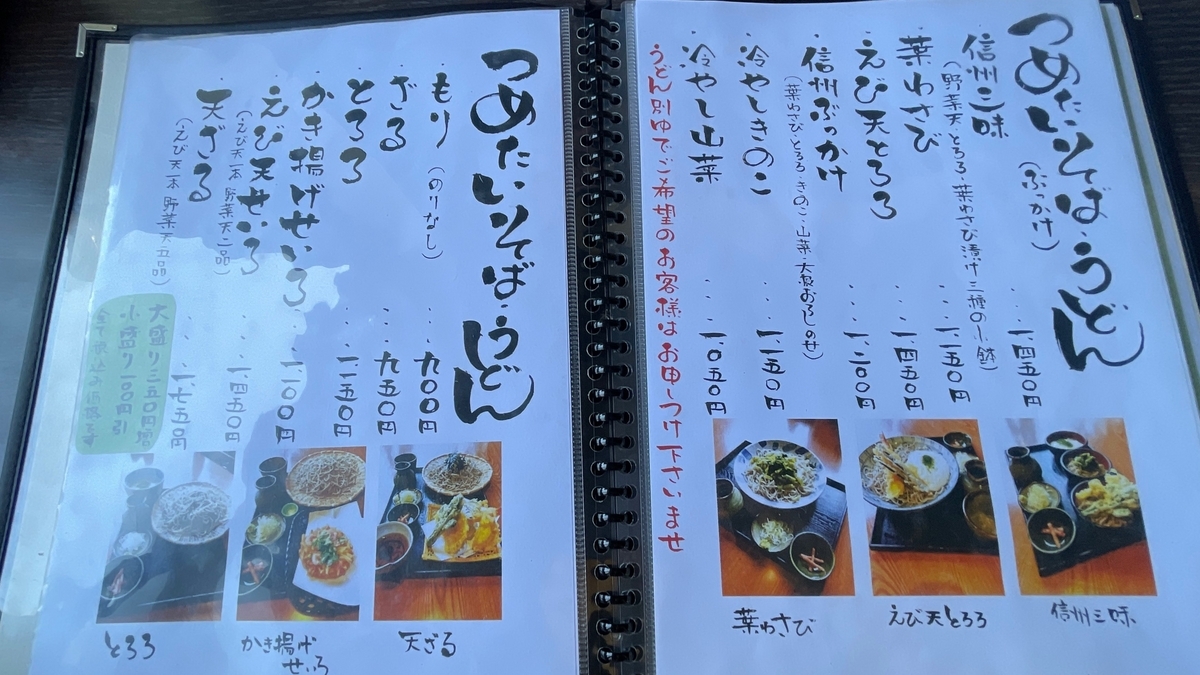 つめたいそば・うどん
(ぶっかけ)
信州三味 ・・一、四五〇円
(野菜天・とろろ・葉わさび漬け 三種の小鉢)
葉わさび ・・一、一五〇円
えび天とろろ ・・一、四五〇円
信州ぶっかけ ・・一、二〇〇円
(葉わさび・とろろ・きのこ・山菜 大根おろしのせ)
冷やしきのこ ・・一、一五〇円
冷やし山菜 ・・一、〇五〇円
うどん別ゆでご希望のお客様はお申しつけ下さいませ
信州三味
えび天とろろ
葉わさび
つめたいそば・うどん
もり (のりなし) ・・九〇〇円
ざる ・・九五〇円
とろろ ・・一、一五〇円
かき揚げせいろ ・・一、一〇〇円
えび天せいろ ・・一、四五〇円
(えび天一本 野菜天二品)
天ざる ・・一、七五〇円
(えび天一本 野菜天五品)
大盛り二五〇円増
小盛り一〇〇円引
全て税込み価格です
天ざる
かき揚げせいろ
とろろ